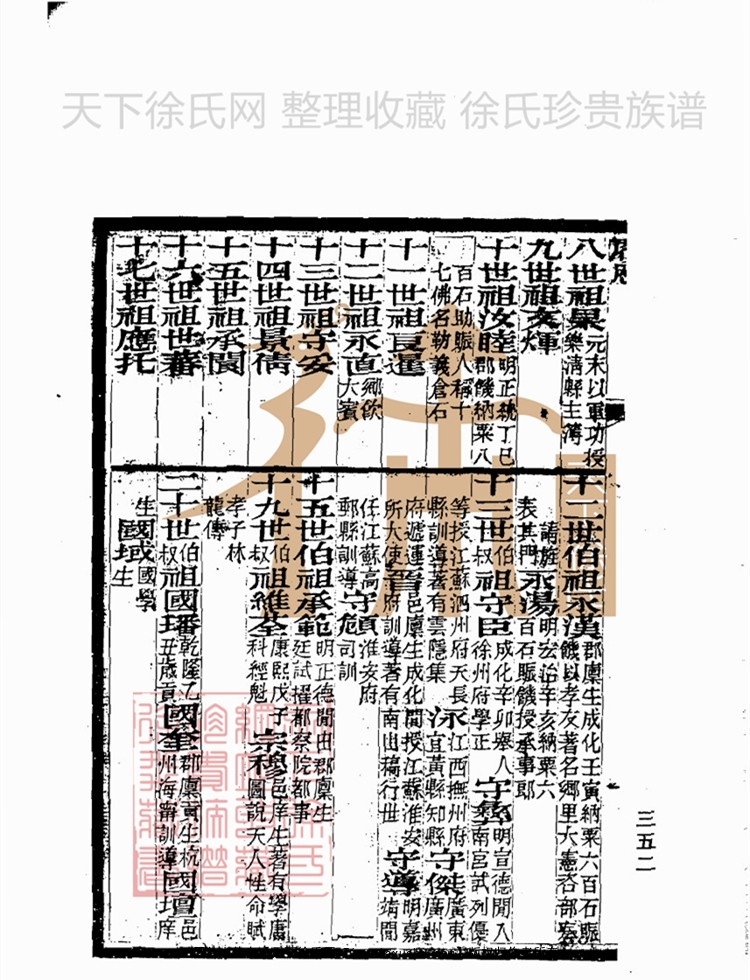 天下徐氏网 整理收藏 徐氏珍贵族谱
八世祖㬎元末以軍功授樂清縣主簿
九世祖友輝
十世祖汝睦明正統丁巳郡饑納粟八
百石助賑人稱十七佛名勒義倉石
十一世祖良暹
十二世祖永直鄉飲大賓
十三世祖守安
十四世祖景倩
十五世祖承閔
十六世祖世蕃
十七世祖應托
十二世伯祖永漢郡廩生成化壬寅納粟六百石賑饑以孝友著名鄉里大憲咨部奏
請旌表其門永湯明宏治辛亥納粟六百石賑饑授承事郎
十三世伯叔祖守臣成化辛卯舉人徐州府學正 守明宣德閒入南宮試列優
等授江蘇泗州府天長縣訓導著有雲隱集 泳江西撫州府宜黃縣知縣 守傑廣東廣州
府遞運所大使晋邑廩生成化閒授江蘇淮安府訓導著有南出稿行世 守導明嘉靖閒
任江蘇高郵縣訓導守愿淮安府司訓
十五世伯祖承範明正德閒由郡廩生廷試擢都察院都事
十九世伯叔祖維荃康熙戊子科經魁 宗穆邑庠生著有學庸圖說天人性命賦
孝子林龍傳
二十世伯叔祖國璠乾隆乙丑歲貢國奎郡廩貢生杭州海甯訓導國壇邑庠
生國域國學生
三五二